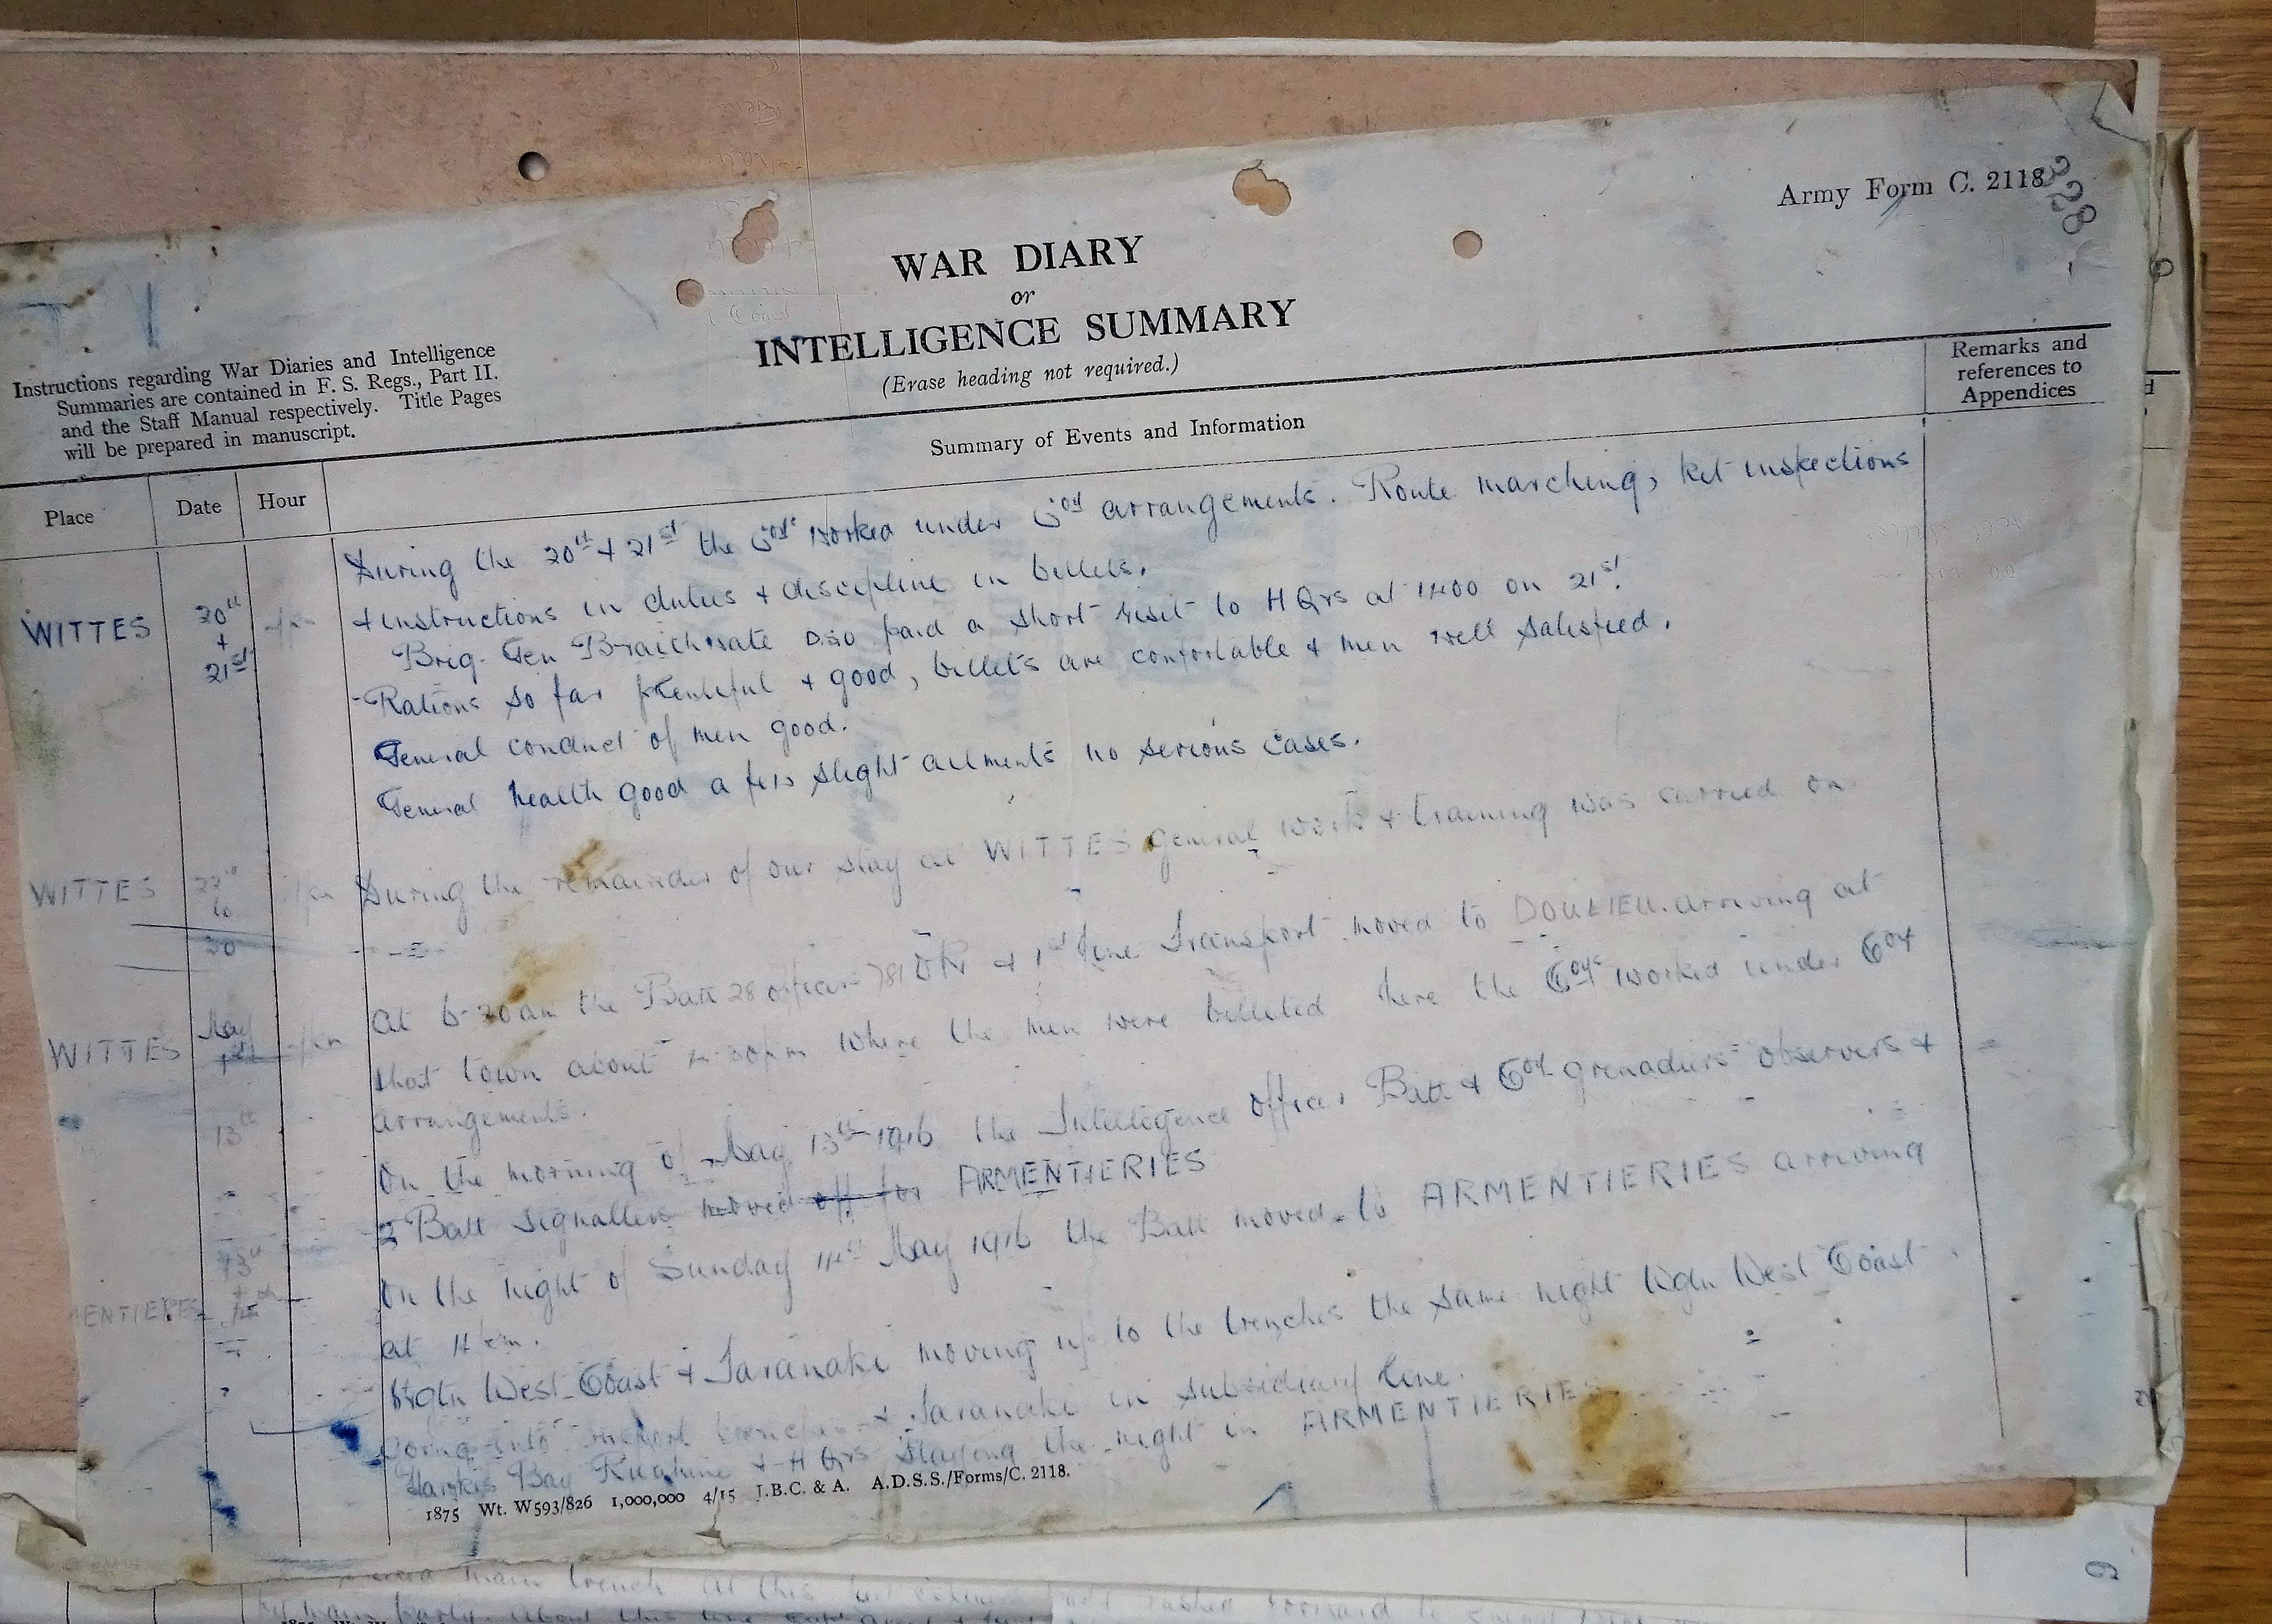 Army Form C. 2118
328
WAR DIARY
or
INTELLIGENCE SUMMARY
(Erase heading not required.)
Instructions regarding War Diaries and Intelligence
Summaries are contained in F. S. Regs., Part II.
and the Staff Manual respectively. Title Pages
will be prepared in manuscript.
Remarks and
references to
Appendices
Summary of Events and Information
Place Date Hour
During the 20th + 21st the Coys worked under Coy arrangements. Route marching, kit inspections
+ instructions in duties + discipline in billets.
WITTES 20th + 21st
Brig. Gen Braithwate DSO paid a short visit to HQrs at 1400 on 21st.
Rations so far plentiful + good, billets are comfortable + men well satisfied.
General conduct of men good.
General health good a few slight ailments no serious cases.
WITTES 22nd to 30 During the remainder of our stay at WITTES general work + training was carried on
WITTES May 1st At 6-20am the Batt 28 officers 781 OR + 1st line Transport moved to DOULIEU. arriving at
that town about pm where the men were billeted there the Coys worked under Coy
arrangements.
13th On the morning of May 13th 1916 the Intelligence Officer Batt + Coy grenadiers observers +
Batt signallers moved off for ARMENTIERIES
13th On the night of Sunday May 1916 the Batt moved to ARMENTIERIES arriving
ENTIERES at 11 pm.
Wgtn West Coast + Taranaki moving up to the trenches the same night Wgtn West Coast
going into support trenches + Taranaki in subsidiary line.
Hawkes Bay Ruahine + HQrs staying the night in ARMENTIERIES
1875 Wt. W593/826 1,000,000 4/15 J.B.C. & A. A.D.S.S./Forms/C. 2118.
main trench at this
party. About this